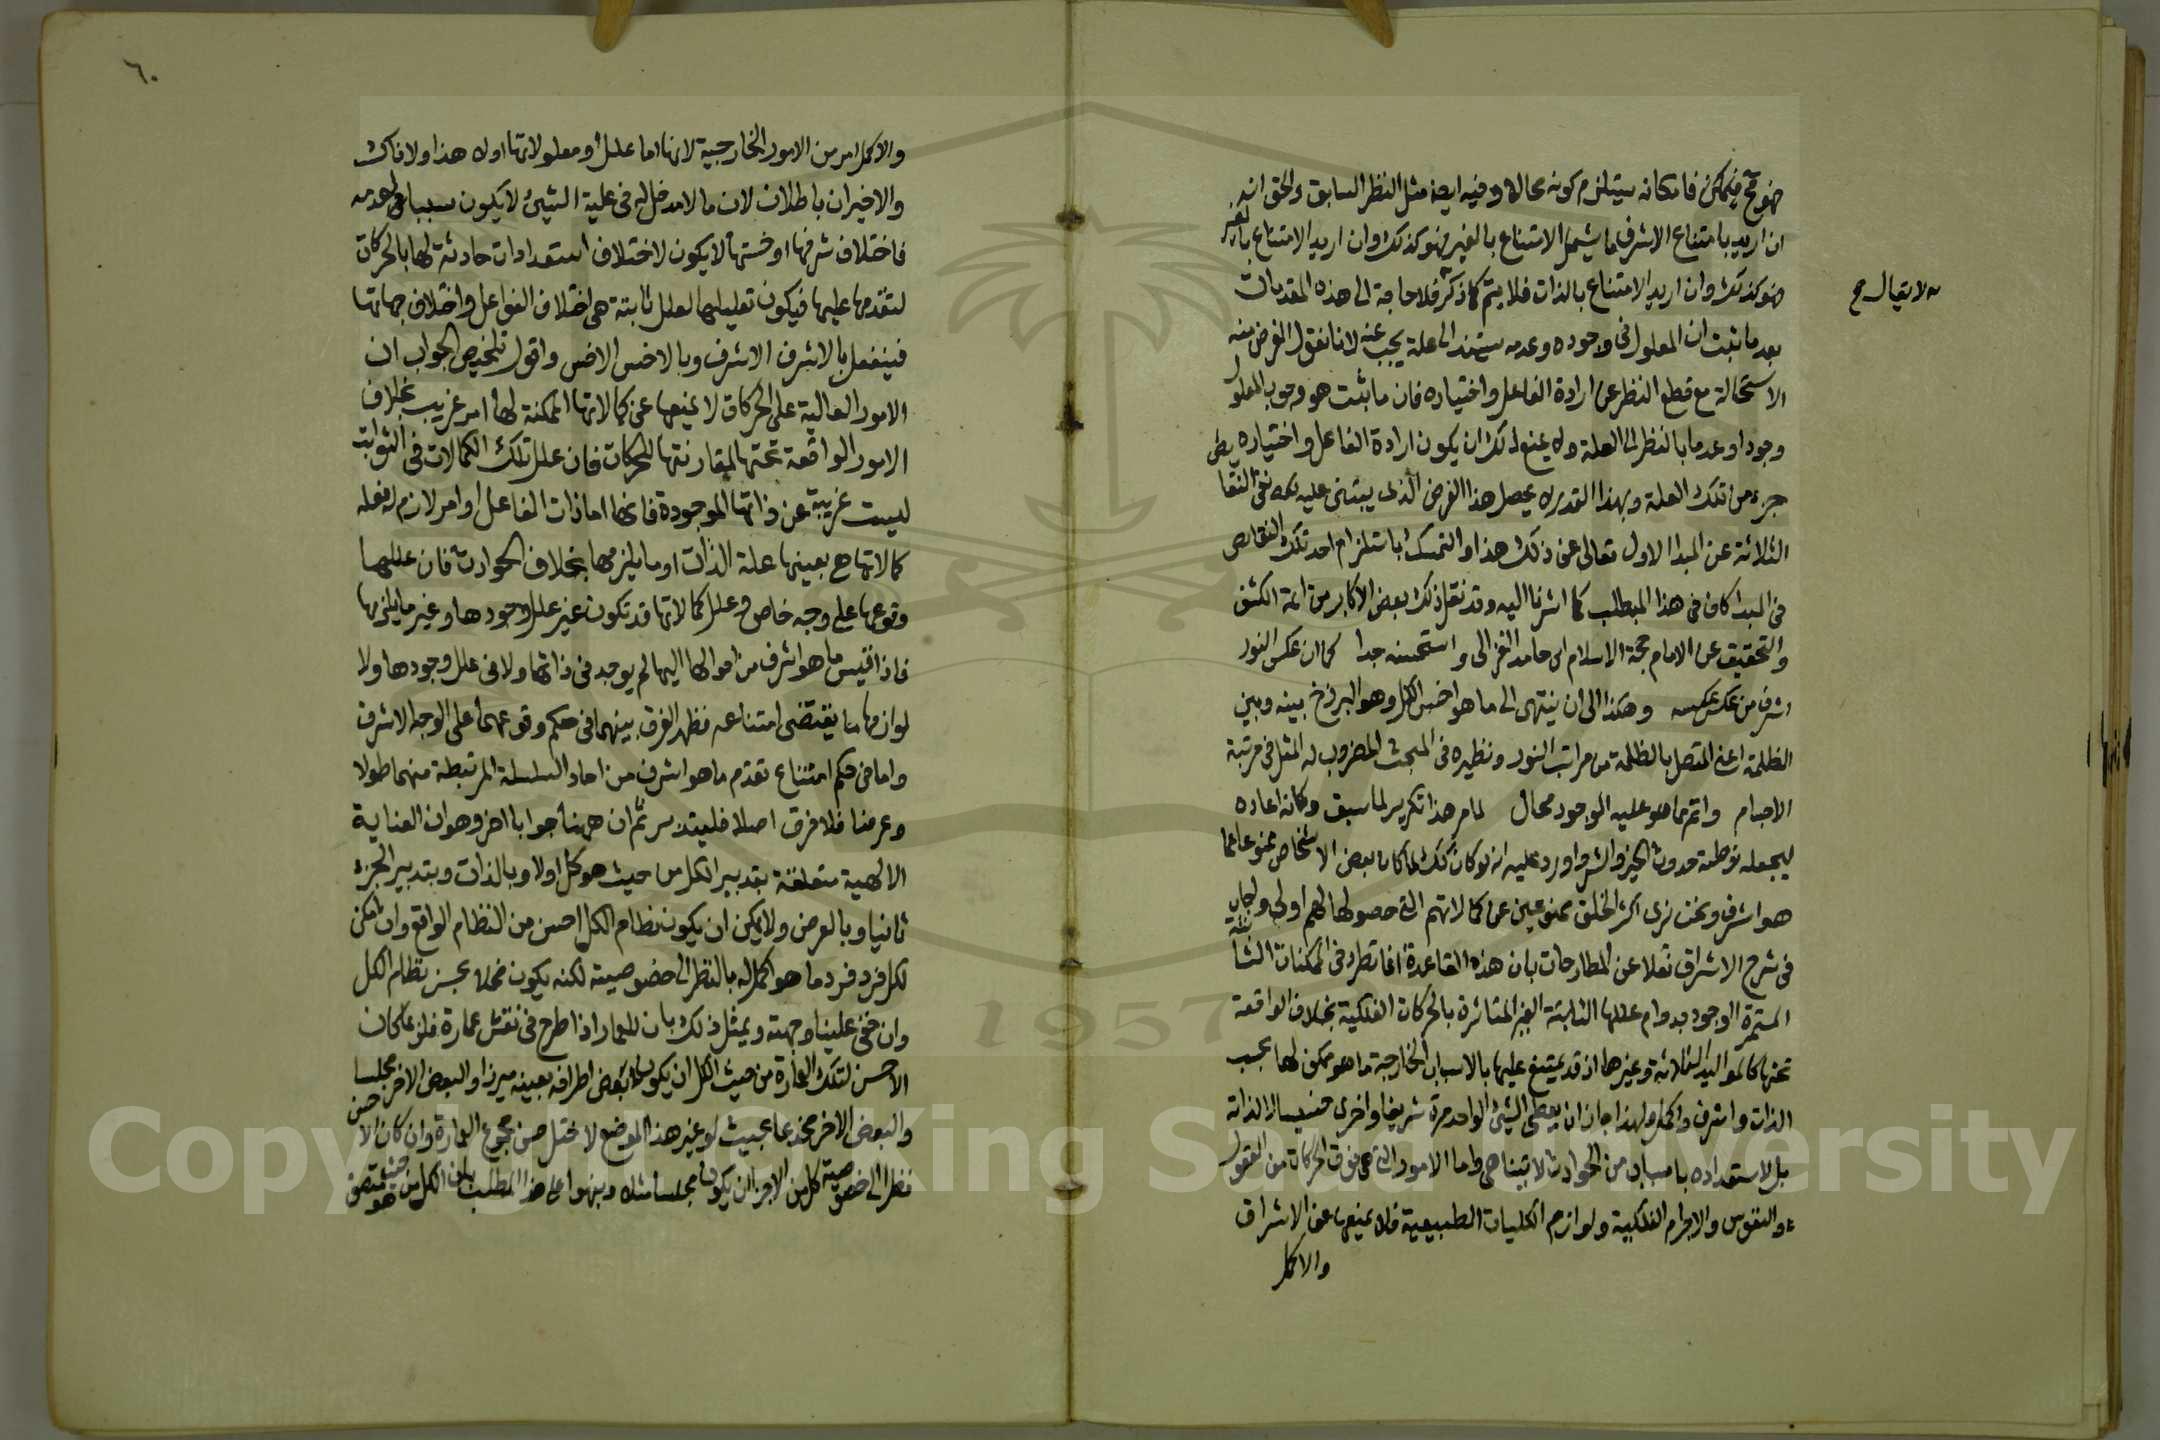 فهو مح فيمكن فامكانه يستلزم كونه محالا وفيه ايضا مثل النظر السابق والحق انه
ان اريد بامتناع الاشرف ما يشمل الامتناع بالغير فهو كذلك وان اريد الامتناع بالغير
فهو كذلك وان اريد الامتناع بالذات فلا يتم كما ذكر فلا حاجة الى هذه المقدمات
لا يقال
بعد ما ثبت ان المعلول في وجوده وعدمه يستند الى علة يجب عنه لانا نقول الغرض منه
الاستحالة مع قطع النظر عن ارادة الفاعل واختياره فان ما ثبت هو وجوب المعلول
وجودا وعدما بالنظر الى العلة ولا يمنع ذلك ان يكون ارادة الفاعل واختياره
جزء من تلك العلة وبهذا القدر لا يحصل هذا الغرض الذى يبتنى عليه نفى النقا
الثلاثة عن المبدا الاول تعالى عن ذلك هذا والتمسك باستلزام احد تلك النقائص
فى المبدا كاف فى هذا المطلب كما اشرنا اليه وقد نقل ذلك بعض الاكابر من ائمة الكشف
والتحقيق عن الامام حجة الاسلام ابى حامد الغزالى واستحسنه جدا كما ان عكس النور
اشرف من عكس عكسه وهكذا الى ان ينتهى الى ما هو اخس الكل وهو البرزخ بينه وبين
الظلمة اعنى المتصل بالظلمة من مراتب النور ونظيره فى المبحث المضروب له المثل فى مرتبة
الاجسام واتم مما هو عليه الوجود محال لما مر هذا تكرير لما سبق وكانه اعاده
ليجعله توطئة حدوث الخير والشر واورد عليه انه لو كان كذلك لما كان بعض الاشخاص ممنوعا عما
هو اشرف ونحن نرى اكثر الخلق ممنوعين عن كمالاتهم التى حصولها لهم اولى واجاب
فى شرح الاشراق نقلا عن المطارحات بان هذه القاعدة انما تطرد فى الممكنات الثابتة
المستمرة الوجود بدوام عللها الثابتة الغير المتاثرة بالحركات الفلكية بخلاف الواقعة
تحتها كالمواليد الثلاثة وغيرها اذ قد يمتنع عليها بالاسباب الخارجة ما هو ممكن لها بحسب
الذات واشرف واكمل ولهذا جاز ان يعطى الشئ الواحد مرة شريفا واخرى خسيسا لا لذاته
بل لاستعداده باسباب من الحوادث لا تتناهى واما الامور التى هى فوق الحركات من العقول
والنفوس والاجرام الفلكية ولوازم الكليات الطبيعية فلا يمنعها عن الاشراق
والاكمل
٦٠
والاكمل امر من الامور الخارجية لانها اما علل او معلولاتها اولا هذا ولا ذاك
والاخيران باطلان لان ما لا مدخل له فى علية الشئ لا يكون سببا لعدمه
فاختلاف شرفها او خستها لا يكون لاختلاف استعدادات حادثة لها بالحركات
لتقدمها عليها فيكون تعليلها لعلل ثابتة هى اختلاف الفواعل واختلاف جهاتها
فينفعل بالاشرف الاشرف وبالاخس الاخس واقول تلخيص الجواب ان
الامور العالية على الحركات لا يمنعها عن كمالاتها الممكنة لها امر غريب بخلاف
الامور الواقعة تحتها لمقارنتها الحركات فان علل تلك الكمالات فى الثوابت
ليست غريبة عن ذاتها الموجودة فانها اما ذات الفاعل او امر لازم له فعلة
كمالاتها هى بعينها علة الذات او ما يلزمها بخلاف الحوادث فان عللها
وقوعها على وجه خاص وعلل كمالاتها قد تكون غير علل وجودها وغير ما يلزمها
فاذا قيس ما هو اشرف من احوالها اليها لم يوجد فى ذاتها ولا فى علل وجودها ولا
لوازمها ما يقتضى امتناعه فظهر الفرق بينهما فى حكم وقوعهما على الوجه الاشرف
واما فى حكم امتناع تقدم ما هو اشرف من احاد السلسلة المرتبطة منهما طولا
وعرضا فلا فرق اصلا فليتدبر ثم ان ههنا جوابا اخر وهو ان العناية
الالهية متعلقة بتدبير الكل من حيث هو كل اولا وبالذات وبتدبير الجزء
ثانيا وبالعرض ولا يمكن ان يكون نظام الكل احسن من النظام الواقع وان امكن
لكل فرد فرد ما هو اكمل له بالنظر الى خصوصيته لكنه يكون مخلا بحسن نظام الكل
وان خفى علينا وجهته ويمثل ذلك بان المعمار اذا طرح فى نقش عمارة فلربما كان
الاحسن لتلك العمارة من حيث الكل ان يكون بعض اطرافه بعينه مبرزا والبعض الاخر مجلسا
والبعض الاخر مخدعا بحيث لو غير هذا الموضع لاختل حسن مجموع العمارة وان كان الاحسن
نظرا الى خصوصية كل من الاجزا ان يكون مجلسا مثلا وبنهوا على هذا المطلب بان الكل من حيث هو
Copyright © King Saud University
1957